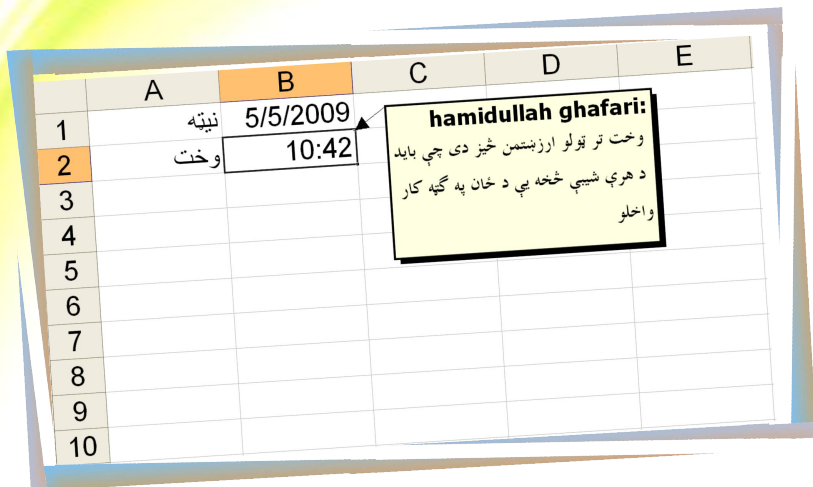 A B C D E
1 نیټه 5/5/2009
2 وخت 10:42
3
4
5
6
7
8
9
10
hamidullah ghafari:
وخت تر ټولو ارزښتمن څیز دی چې باید
د هرې شیبې څخه یې د ځان په ګټه کار
واخلو